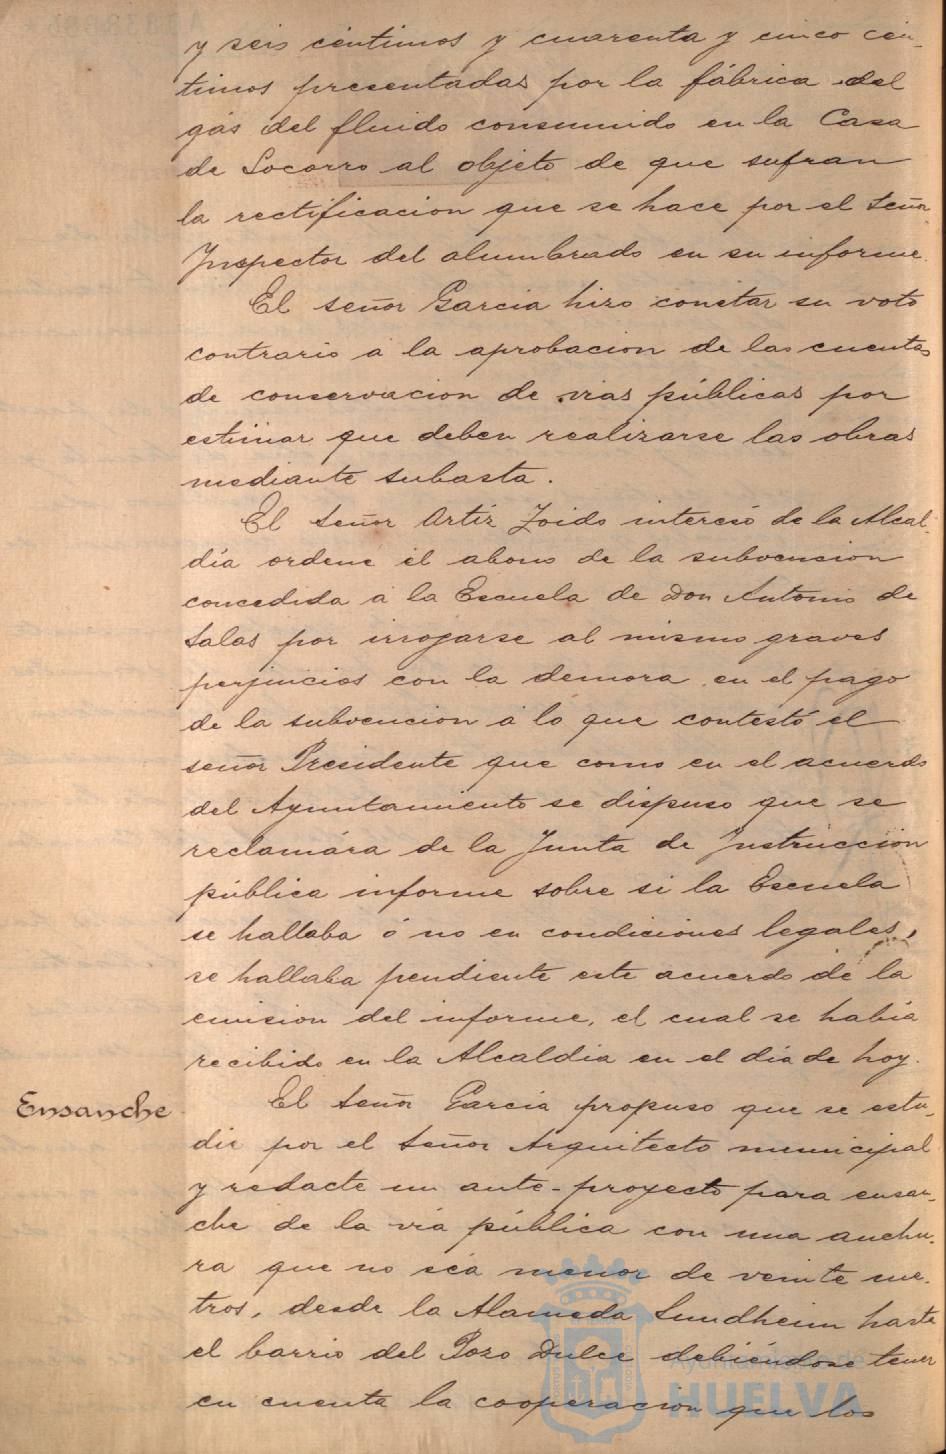 y seis céntimos y cuarenta y cinco cén-
timos presentadas por la fábrica del
gas del fluido consumido en la Casa
de Socorro al objeto de que sufran
la rectificacion que se hace por el Señor
Inspector del alumbrado en su informe.
El señor Garcia hizo constar su voto
contrario a la aprobacion de las cuentas
de conservacion de vias públicas por
estimar que deben realizarse las obras
mediante subasta.
El señor Ortiz Zoido interesó de la Alcal-
día ordene el abono de la subvencion
concedida a la Escuela de Don Antonio de
Salas por irrogarse al mismo graves
perjuicios con la demora en el pago
de la subvencion a lo que contestó el
señor Presidente que como en el acuerdo
del Ayuntamiento se dispuso que se
reclamára de la Junta de Instruccion
pública informe sobre si la Escuela
se hallaba ó no en condiciones legales,
se hallaba pendiente este acuerdo de la
emision del informe, el cual se había
recibido en la Alcaldia en el día de hoy.
Ensanche
El señor Garcia propuso que se estu-
die por el Señor Arquitecto municipal
y redacte un ante-proyecto para ensan-
che de la vía pública con una anchu-
ra que no séa menor de veinte me-
tros, desde la Alameda Sundheim hasta
el barrio del Pozo Dulce debiéndose tener
en cuenta la cooperacion que los
Ayuntamiento de
HUELVA